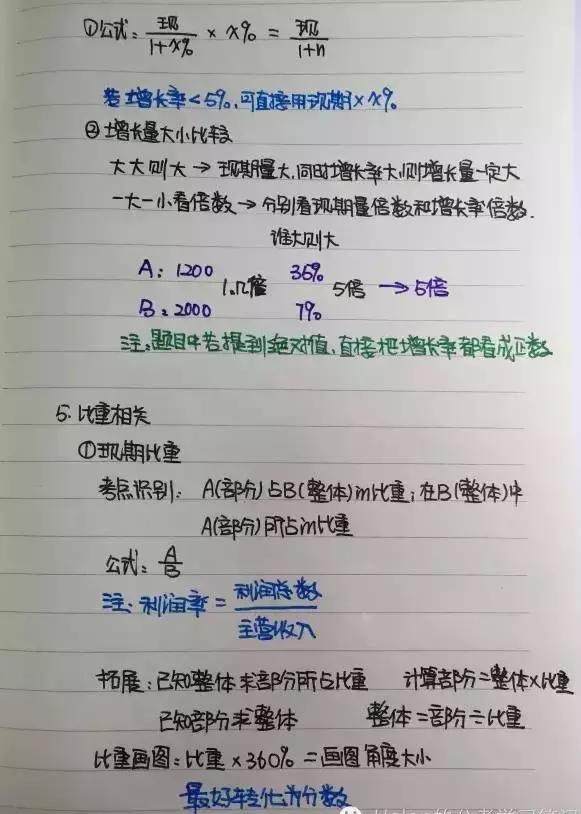 ①公式: 现/1+x% × x% = 现/1+n
若增长率<5%,可直接用现期×x%
②增长量大小比较
大大则大→现期量大,同时增长率大,则增长量一定大
一大一小看倍数→分别看现期量倍数和增长率倍数.
谁大则大
A: 1200 36%
1.几倍 5倍 →5倍
B: 2000 7%
注:题目中若提到绝对值,直接把增长率都看成正数
5.比重相关
①现期比重
考点识别: A(部分)占B(整体)的比重;在B(整体)中
A(部分)所占的比重
公式: A/B
注: 利润率=利润总数/主营收入
拓展:已知整体求部分所占比重 计算部分=整体×比重
已知部分求整体 整体=部分÷比重
比重画图:比重×360%=画图角度大小
最好转化为分数